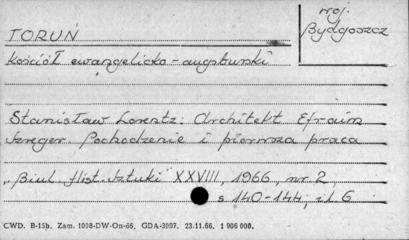 TORUŃ
woj.
Bydgoszcz
Kościół ewangelicko-augsburski
Stanisław Lorentz: Architekt Efraim
Szreger. Pochodzenie i pierwsza praca
„Biul. Hist. Sztuki" XXVIII, 1966, nr. 2,
s 140-144, il. 6
CWD. B-15b. Zam. 1098-DW-On-66. GDA-3097. 23.11.66. 1 906 000.